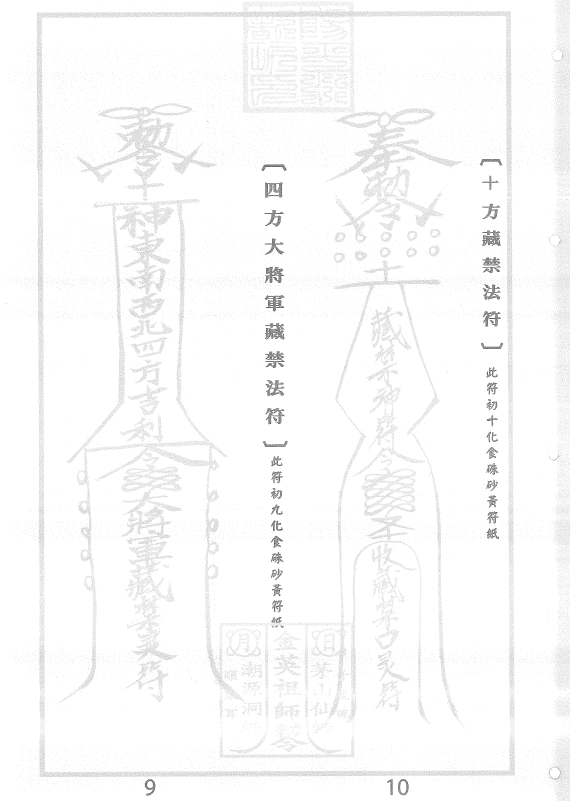 【十方藏禁法符】此符初十化食硃砂黃符紙
奉勅令
十
藏禁千神符令
收藏禁口炁符
【四方大將軍藏禁法符】此符初九化食硃砂黃符紙
勅令
十
神東南西北四方吉利
令
大將軍藏禁炁符
日 茅山仙師
金英祖師勅令
月 潮源洞師
10
9